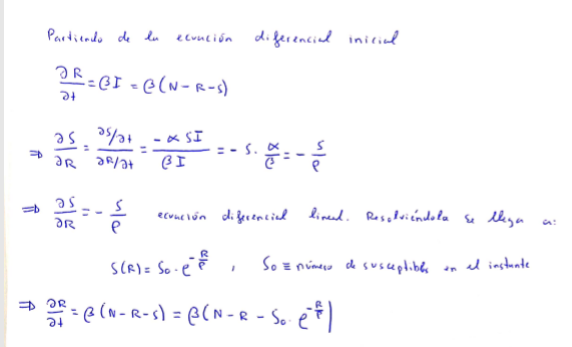 Partiendo de la ecuación diferencial inicial
∂R/∂t = βI = β(N-R-S)
⇒ ∂S/∂R = (∂S/∂t)/(∂R/∂t) = (-α SI)/(βI) = - S · α/β = - S/ρ
⇒ ∂S/∂R = - S/ρ ecuación diferencial lineal. Resolviéndola se llega a:
S(R) = S₀ · e^(-R/ρ) , S₀ ≡ número de susceptibles en el instante
⇒ ∂R/∂t = β(N-R-S) = β(N - R - S₀ · e^(-R/ρ))